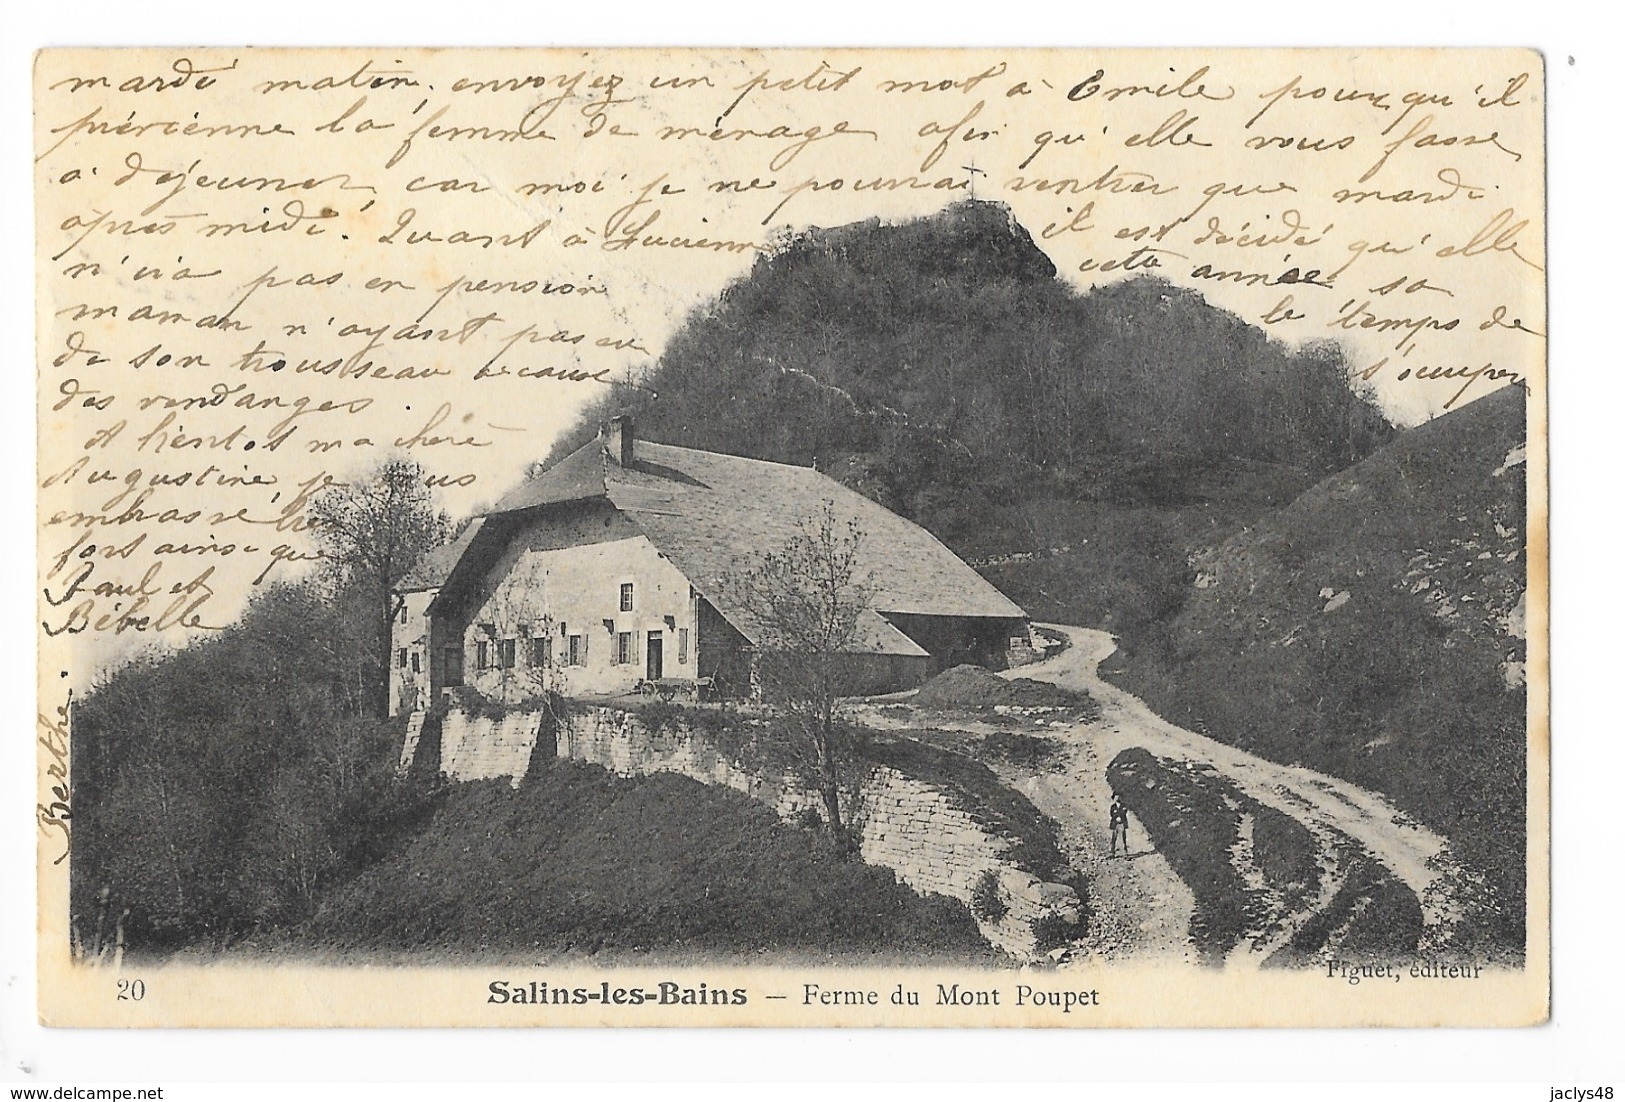 mardi matin, envoyez un petit mot à Emile pourqu'il
prévienne la femme de ménage afin qu'elle vous fasse
à déjeuner, car moi je ne pourrai rentrer que mardi
après midi. Quant à Lucienne il est décidé qu'elle
n'ira pas en pension cette année sa
maman n'ayant pas eu le temps de
de son trousseau a cause s'occuper
des vendanges.
A bientot ma chère
Augustine, je vous
embrasse bien
fort ainsi que
Paul et
Bébelle
Berthe.
20
Salins-les-Bains — Ferme du Mont Poupet
Figuet, éditeur
delcampe.net
jaclys48